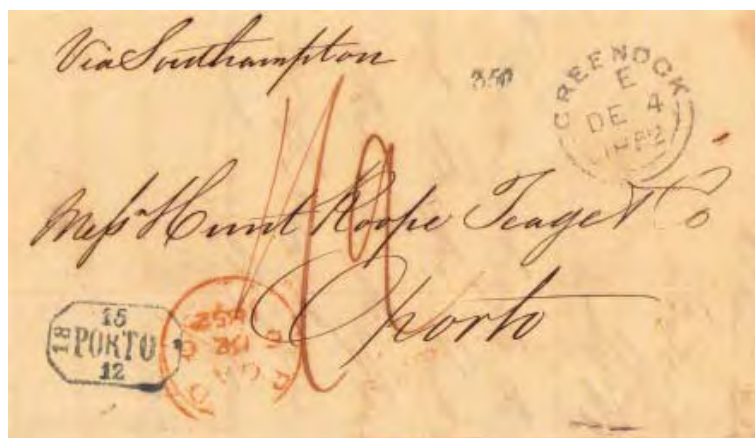 Via Southampton
350
GREENOCK
E
DE 4
1852
1/9
Mess^rs Hunt Roope Teage & Co
Oporto
15
18 PORTO
12
PAID